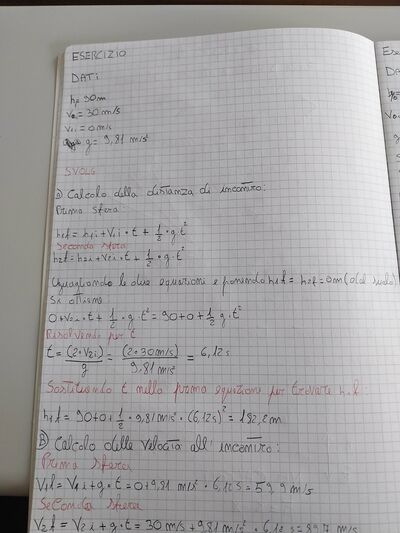 ESERCIZIO
DATI
hi= 90m
V2 = 30 m/s
V1i = 0 m/s
g= 9,81 m/s²
SVOLG
A) Calcolo della distanza di incontro:
Prima sfera:
h1f = h1i + V1i · t + 1/2 · g · t²
Seconda sfera
h2f = h2i + V2i · t + 1/2 · g · t²
Uguagliando le due equazioni e ponendo h1f = h2f = 0m (al suolo)
Si ottiene
0+V2i · t + 1/2 · g · t² = 90+0+ 1/2 g · t²
Risolvendo per t
t = (2·V2i)/g = (2·30 m/s)/9,81 m/s² = 6,12s
Sostituendo t nella prima equazione per trovare h1f
h1f = 90+0+ 1/2 · 9,81 m/s² · (6,12s)² = 182,2m
B) Calcolo delle velocità all'incontro:
Prima sfera
V1f = V1i + g · t = 0+9,81 m/s² · 6,12s = 59,9 m/s
Seconda sfera
V2f = V2i + g · t = 30 m/s + 9,81 m/s² · 6,12s = 89,7 m/s
Ese
DA
V0